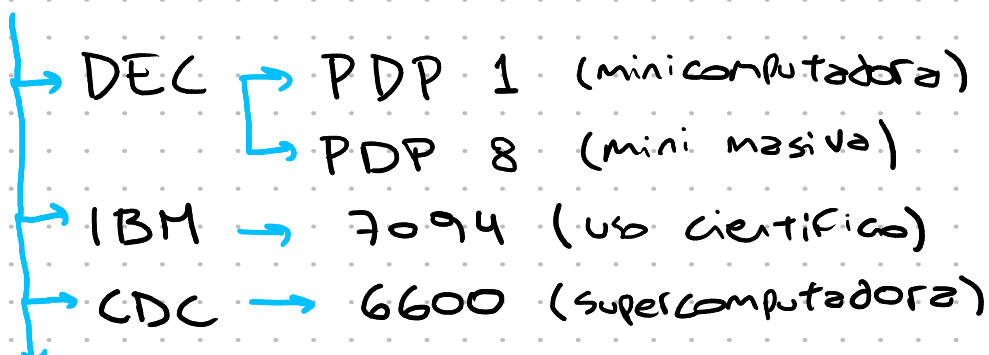 DEC PDP 1 (minicomputadora)
PDP 8 (mini masiva)
IBM 7094 (uso científico)
CDC 6600 (supercomputadora)